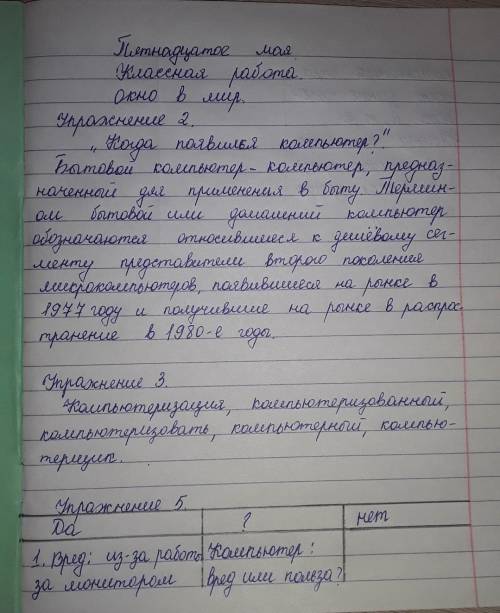 Пятнадцатое мая
Классная работа.
Окно в мир.
Упражнение 2.
„Когда появился компьютер?“
Бытовой компьютер - компьютер, предназ-
наченный для применения в быту. Термин-
ом бытовой или домашний компьютер
обозначаются относившиеся к дешёвому сег-
менту представители второго поколения
микрокомпьютеров, появившиеся на рынке в
1977 году и получившие на рынке в распрос-
транение в 1980-е годы.
Упражнение 3.
Компьютеризация, компьютеризованный,
компьютеризовать, компьютерный, компью-
терщик.
Упражнение 5.
Да ? нет
1. Вред: из-за работы Компьютер:
за монитором вред или польза?